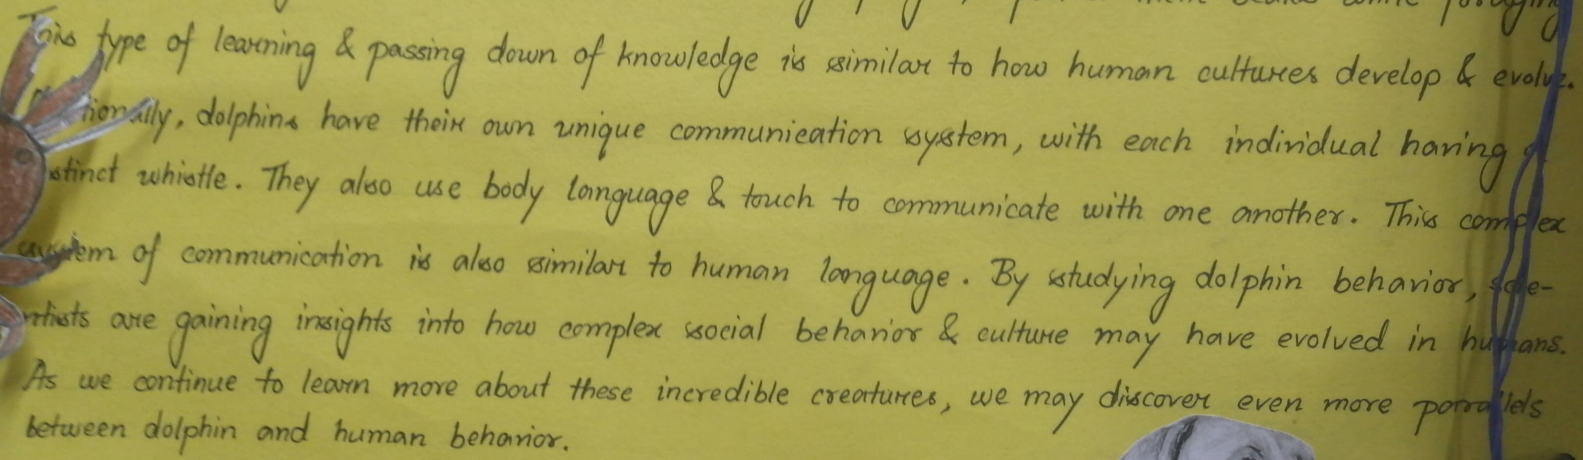 This type of learning & passing down of knowledge is similar to how human cultures develop & evolve.
dolphins have their own unique communication system, with each individual having a
whistle. They also use body language & touch to communicate with one another. This complex
system of communication is also similar to human language. By studying dolphin behavior, scie-
ntists are gaining insights into how complex social behavior & culture may have evolved in humans.
As we continue to learn more about these incredible creatures, we may discover even more parallels
between dolphin and human behavior.